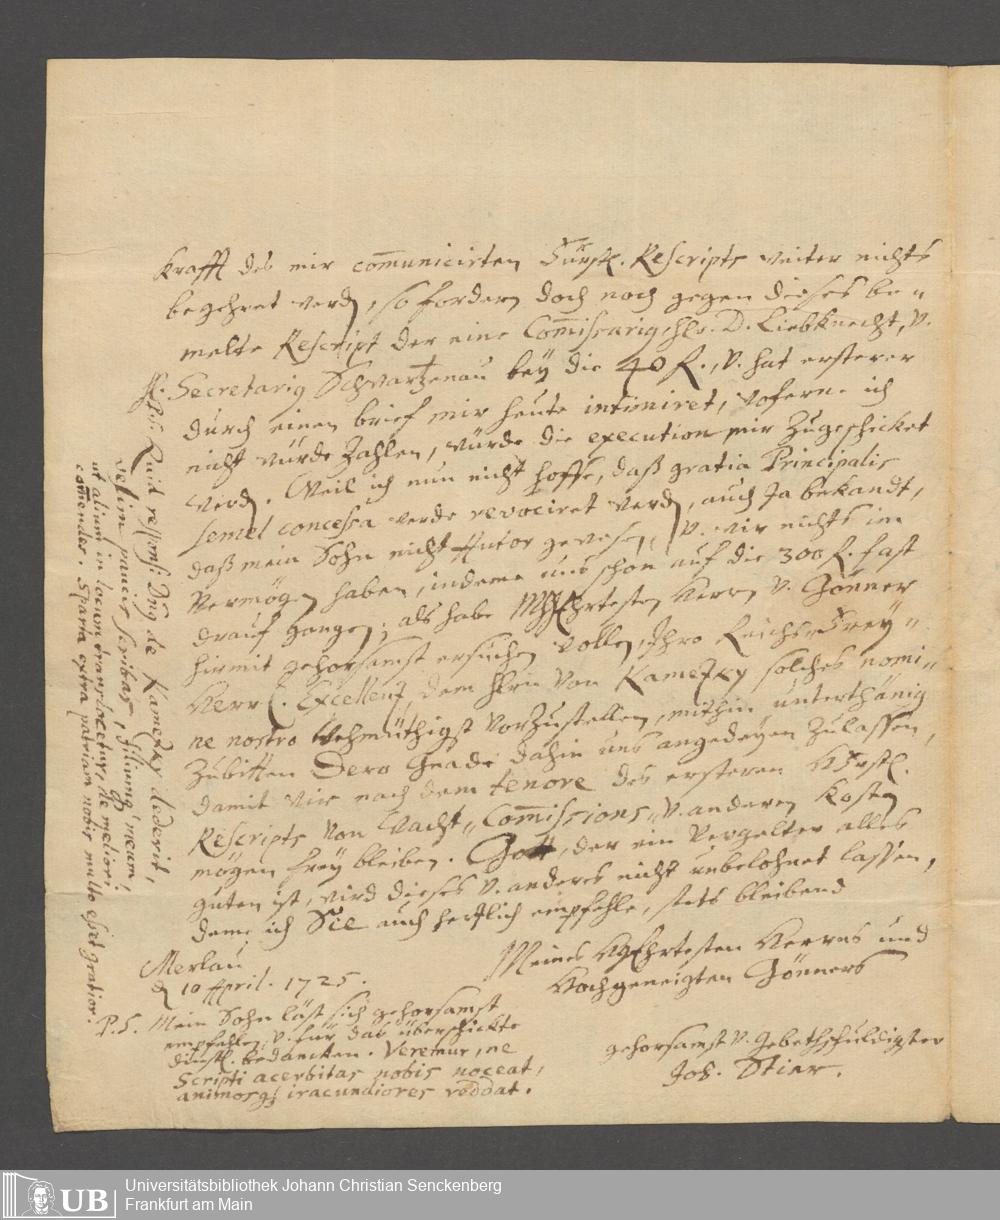 Krafft des mir com̄unicirten Fürstl. Rescripts weiter nichts
begehret werdẽ, so fordern doch noch gegen dieses be-
melte Rescript der eine Com̄issarius, Hr. D. Liebknecht, v.
H. Secretarius Schwartzenau bey die 40 f., v. hat ersterer
durch einen brief mir heute intimiret, woferne ich
nicht würde Zahlen, würde die execution mir Zugeschicket
werdẽ. Weil ich nun nicht hoffe, daß gratia Principalis
semel concessa werde revociret werdẽ, auch Ja bekandt,
daß mein Sohn nicht Autor gewesẽ, v. wir nichts im
Vermögẽ haben, indeme uns schon auf die 300 f. fast
drauf gangẽ; als habe Herrn v. Gönner
hirmit gehorsamst ersuchen wollẽ, Ihro Reichs-Frey-
Herrl. Excellenz, dem Hrn von Kametzky solches nomi-
ne nostro Wehmüthigst vorzustellen, mithin unterthänig
Zubitten Dero Gnade dahin uns angedeyen Zulassen,
damit wir nach dem tenore des ersteren Fürstl.
Rescripts von Wacht- Com̄issions- v. anderẽ Kostẽ
mögen frey bleiben. Gott, der ein Vergelter alles
guten ist, wird dieses v. anderes nicht unbelohnet lassen,
deme ich Sie auch hertzlich empfehle, stets bleibend
Meines HochgeEhrtesten Herrns und
Hochgeneigten Gönners
Merlau
10 April. 1725.
gehorsamst v. Gebethschuldigster
Joh. Stier.
P.S. Mein Sohn läst sich gehorsamst
empfehlen, v. für das überschickte
dienstl. bedancken. Veremur, ne
Scripti acerbitas nobis noceat,
animosq; iracundiores reddat.
P.S. Quid responsi Dn9 de Kametzky dederit,
velim paucis scribas, filiumq; meum,
ut alium in locum translocetur, de meliori
com̄endes. Sparta extra patriam nobis multo esset gratior.
Universitätsbibliothek Johann Christian Senckenberg
UB Frankfurt am Main